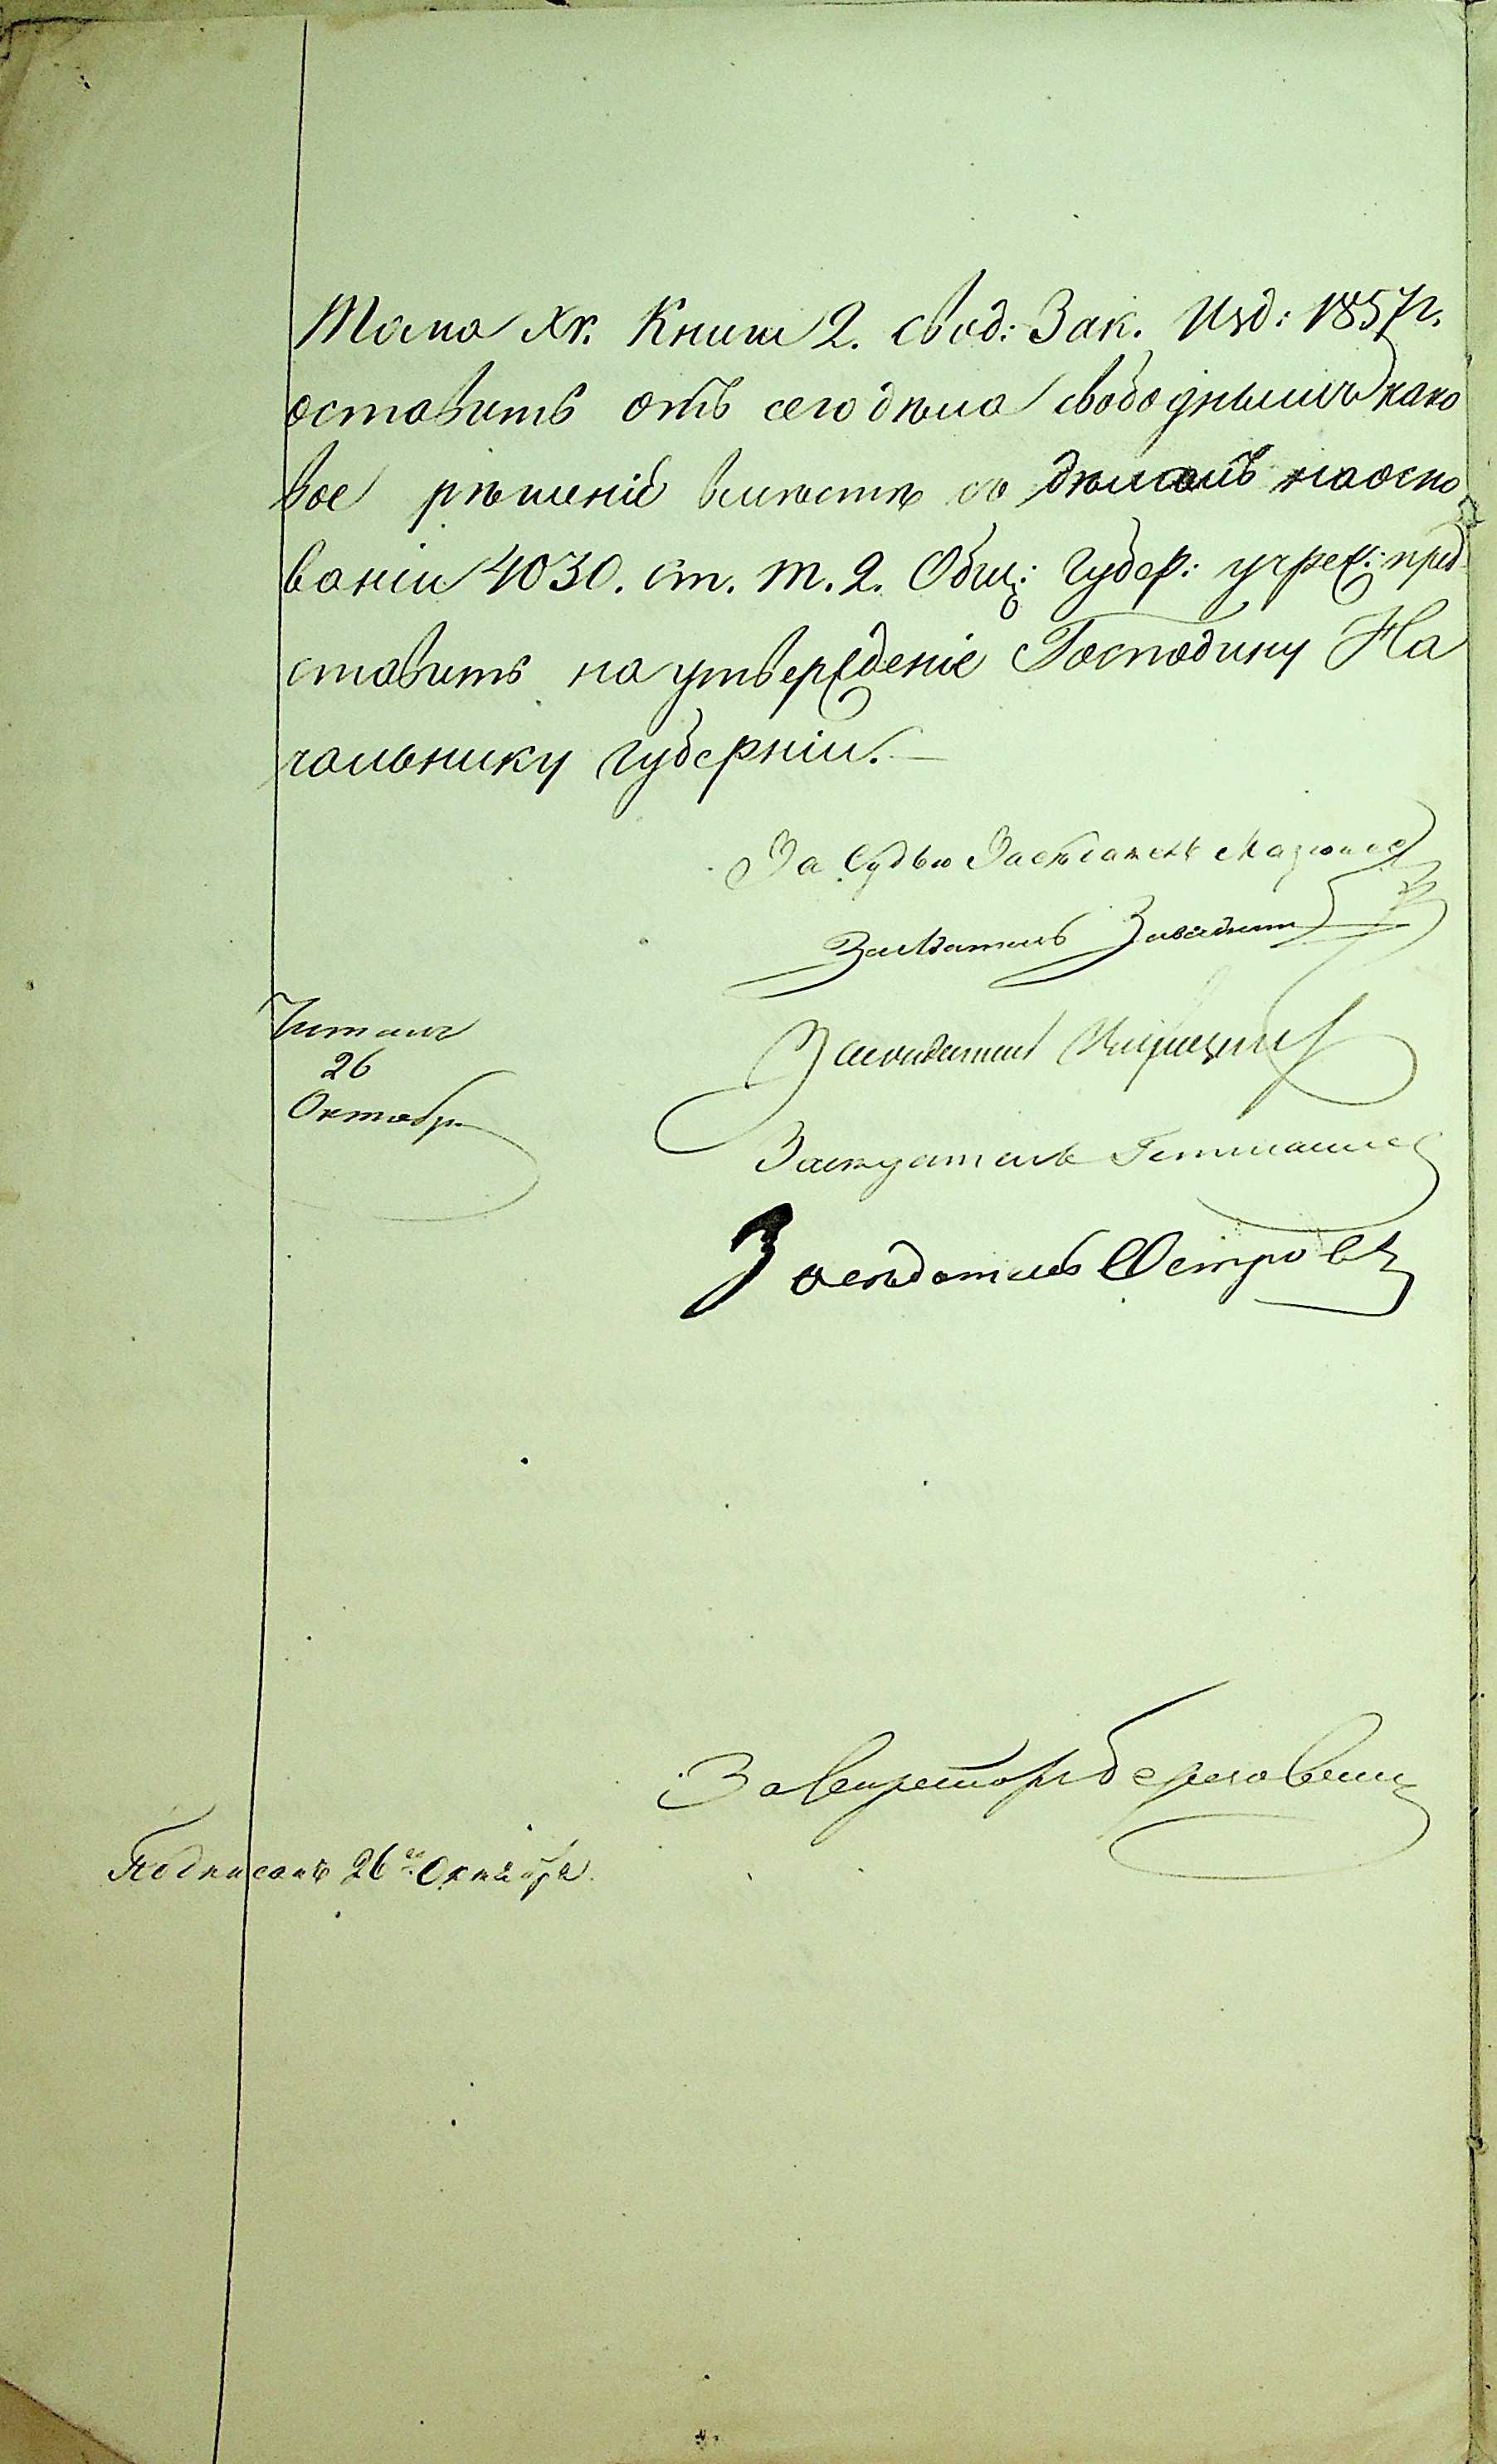 Тома XV. Книги 2. Свод: Зак. Изд: 1857 г.
оставить отъ сего дѣла свободнымъ како
вое рѣшеніе вмѣстѣ съ дѣломъ на осно
ваніи 4030. ст. т. 2. Общ: Губер: учреж: пред
ставить на утвержденіе Господину На
чальнику Губерніи.—
За Судью Засѣдатель
Засѣдатель
Засѣдатель
Читалъ
26
Октября
Засѣдатель
Засѣдатель Островъ
За Секретаря
Подписанъ 26го Октября.